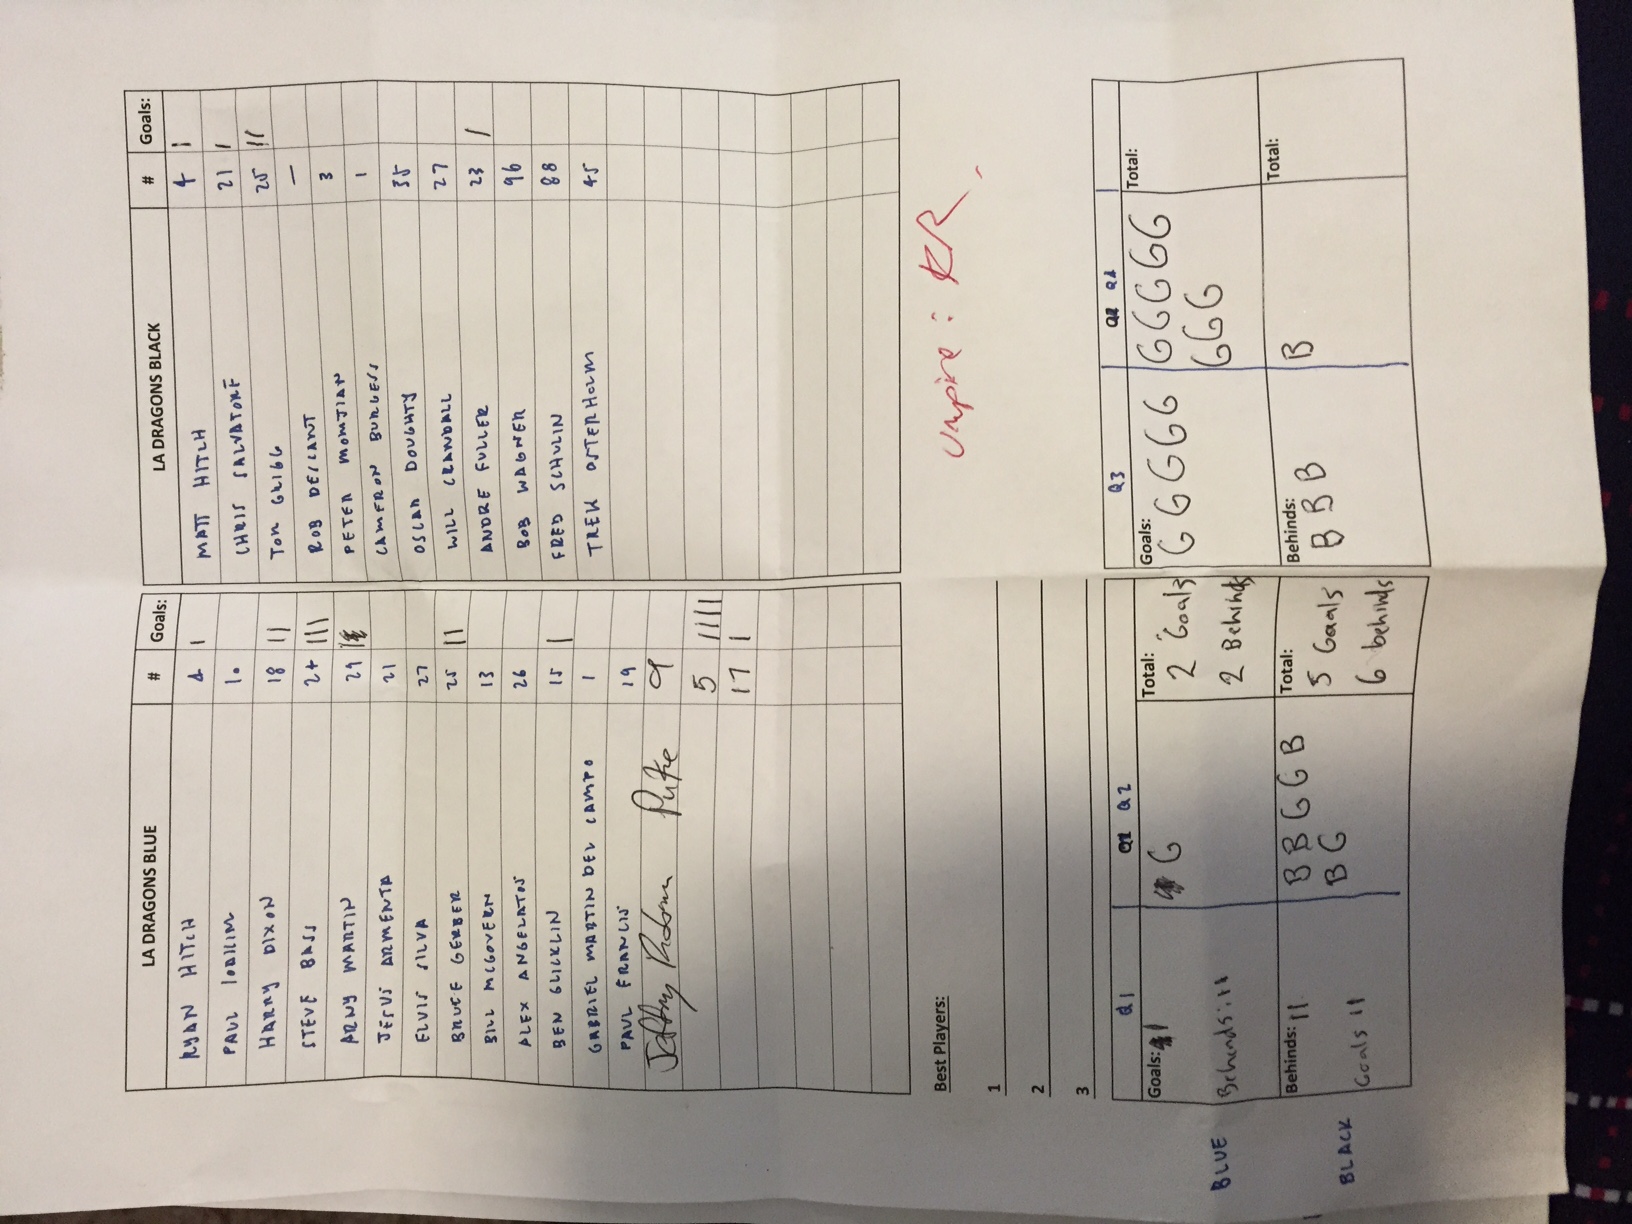 LA DRAGONS BLUE # Goals:
RYAN HITCH 4 |
PAUL IOAKIM 10
HARRY DIXON 18 ||
STEVE BASS 24 |||
ARNY MARTIN 29
JESUS ARMENTA 21
ELVIS SILVA 27
BRUCE GERBER 25 ||
BILL MCGOVERN 13
ALEX ANGELATOS 26
BEN GLICKLIN 15 |
GABRIEL MARTIN DEL CAMPO 1
PAUL FRANCIS 19
9
5 ||||
17 |
LA DRAGONS BLACK # Goals:
MATT HITCH 4 |
CHRIS SALVATORE 21 |
TOM GRIGG 25 ||
ROB DESCANT —
PETER MOMJIAN 3
CAMERON BURGESS 1
OSCAR DOUGHTY 35
WILL CRANDALL 27
ANDRE FULLER 23 |
BOB WAGNER 96
FRED SCHULIN 88
TREK OSTERHOLM 45
Umpire: KR.
Best Players:
1
2
3
Q1 Q2
BLUE
Goals: |
Behinds: ||
G
Total:
2 Goals
2 Behinds
BLACK
Behinds: ||
Goals ||
B B G G B
B G
Total:
5 Goals
6 behinds
Q3 Q4
Goals:
G G G G G
G G G G G
G G G
Total:
Behinds:
B B B
B
Total: